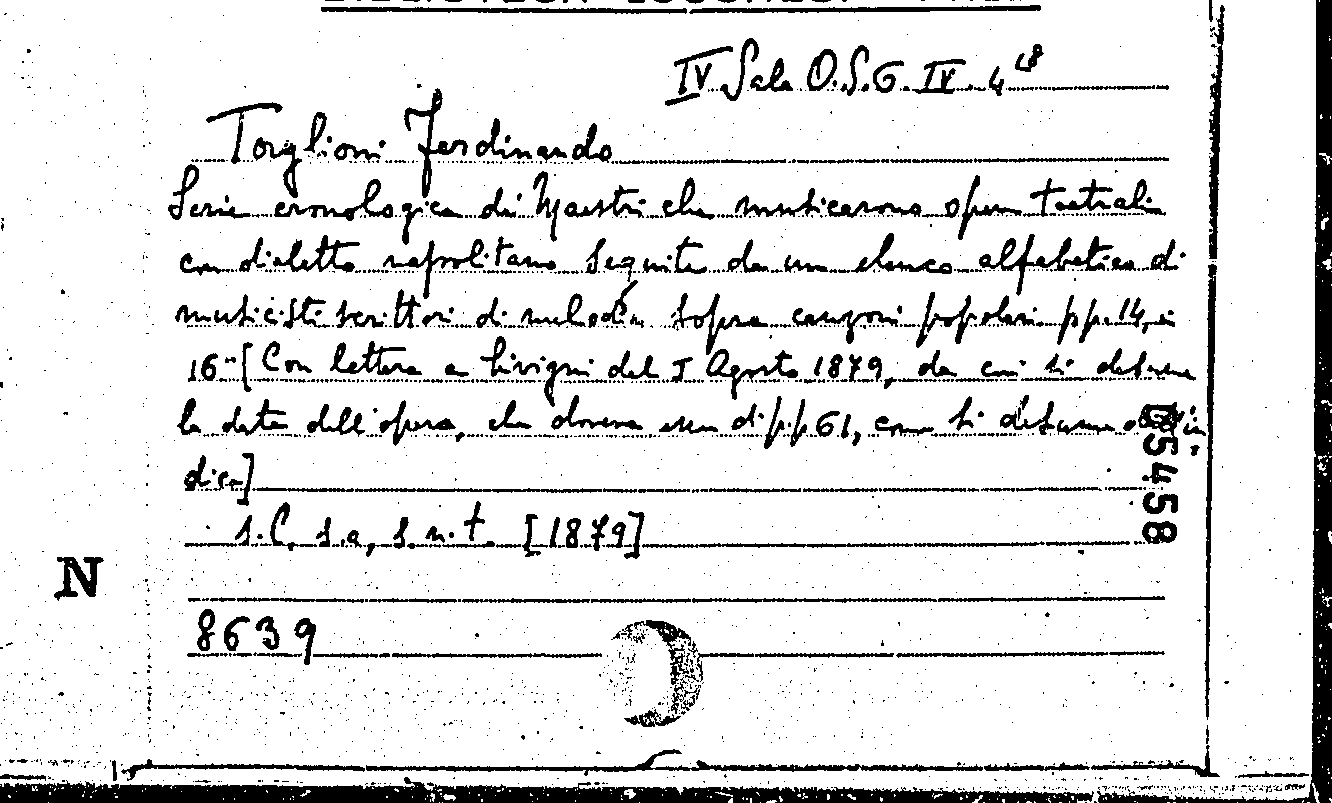 IV Sala O.S.G. IV. 4 18
Torglioni Ferdinando
Serie cronologica di Maestri che musicarono opere teatrali
con dialetto napolitano seguita da un elenco alfabetico di
musicisti scrittori di melodia sopra canzoni popolari pp. 14, in
16- [Con lettera a Livigni del I Agosto 1879, da cui si desume
la data dell'opera, che doveva essere di pp 61, come si desume
dica]
s.l, s.a, s.n.t. [1879]
N
8639
5458